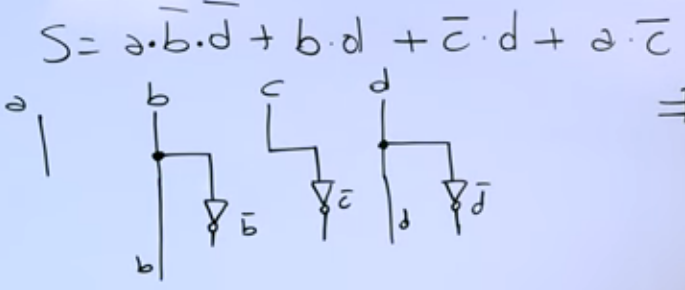 S = a·b̅·d̅ + b·d + c̅·d + a·c̅
a b c d =
b̅ c̅ d d̅
b